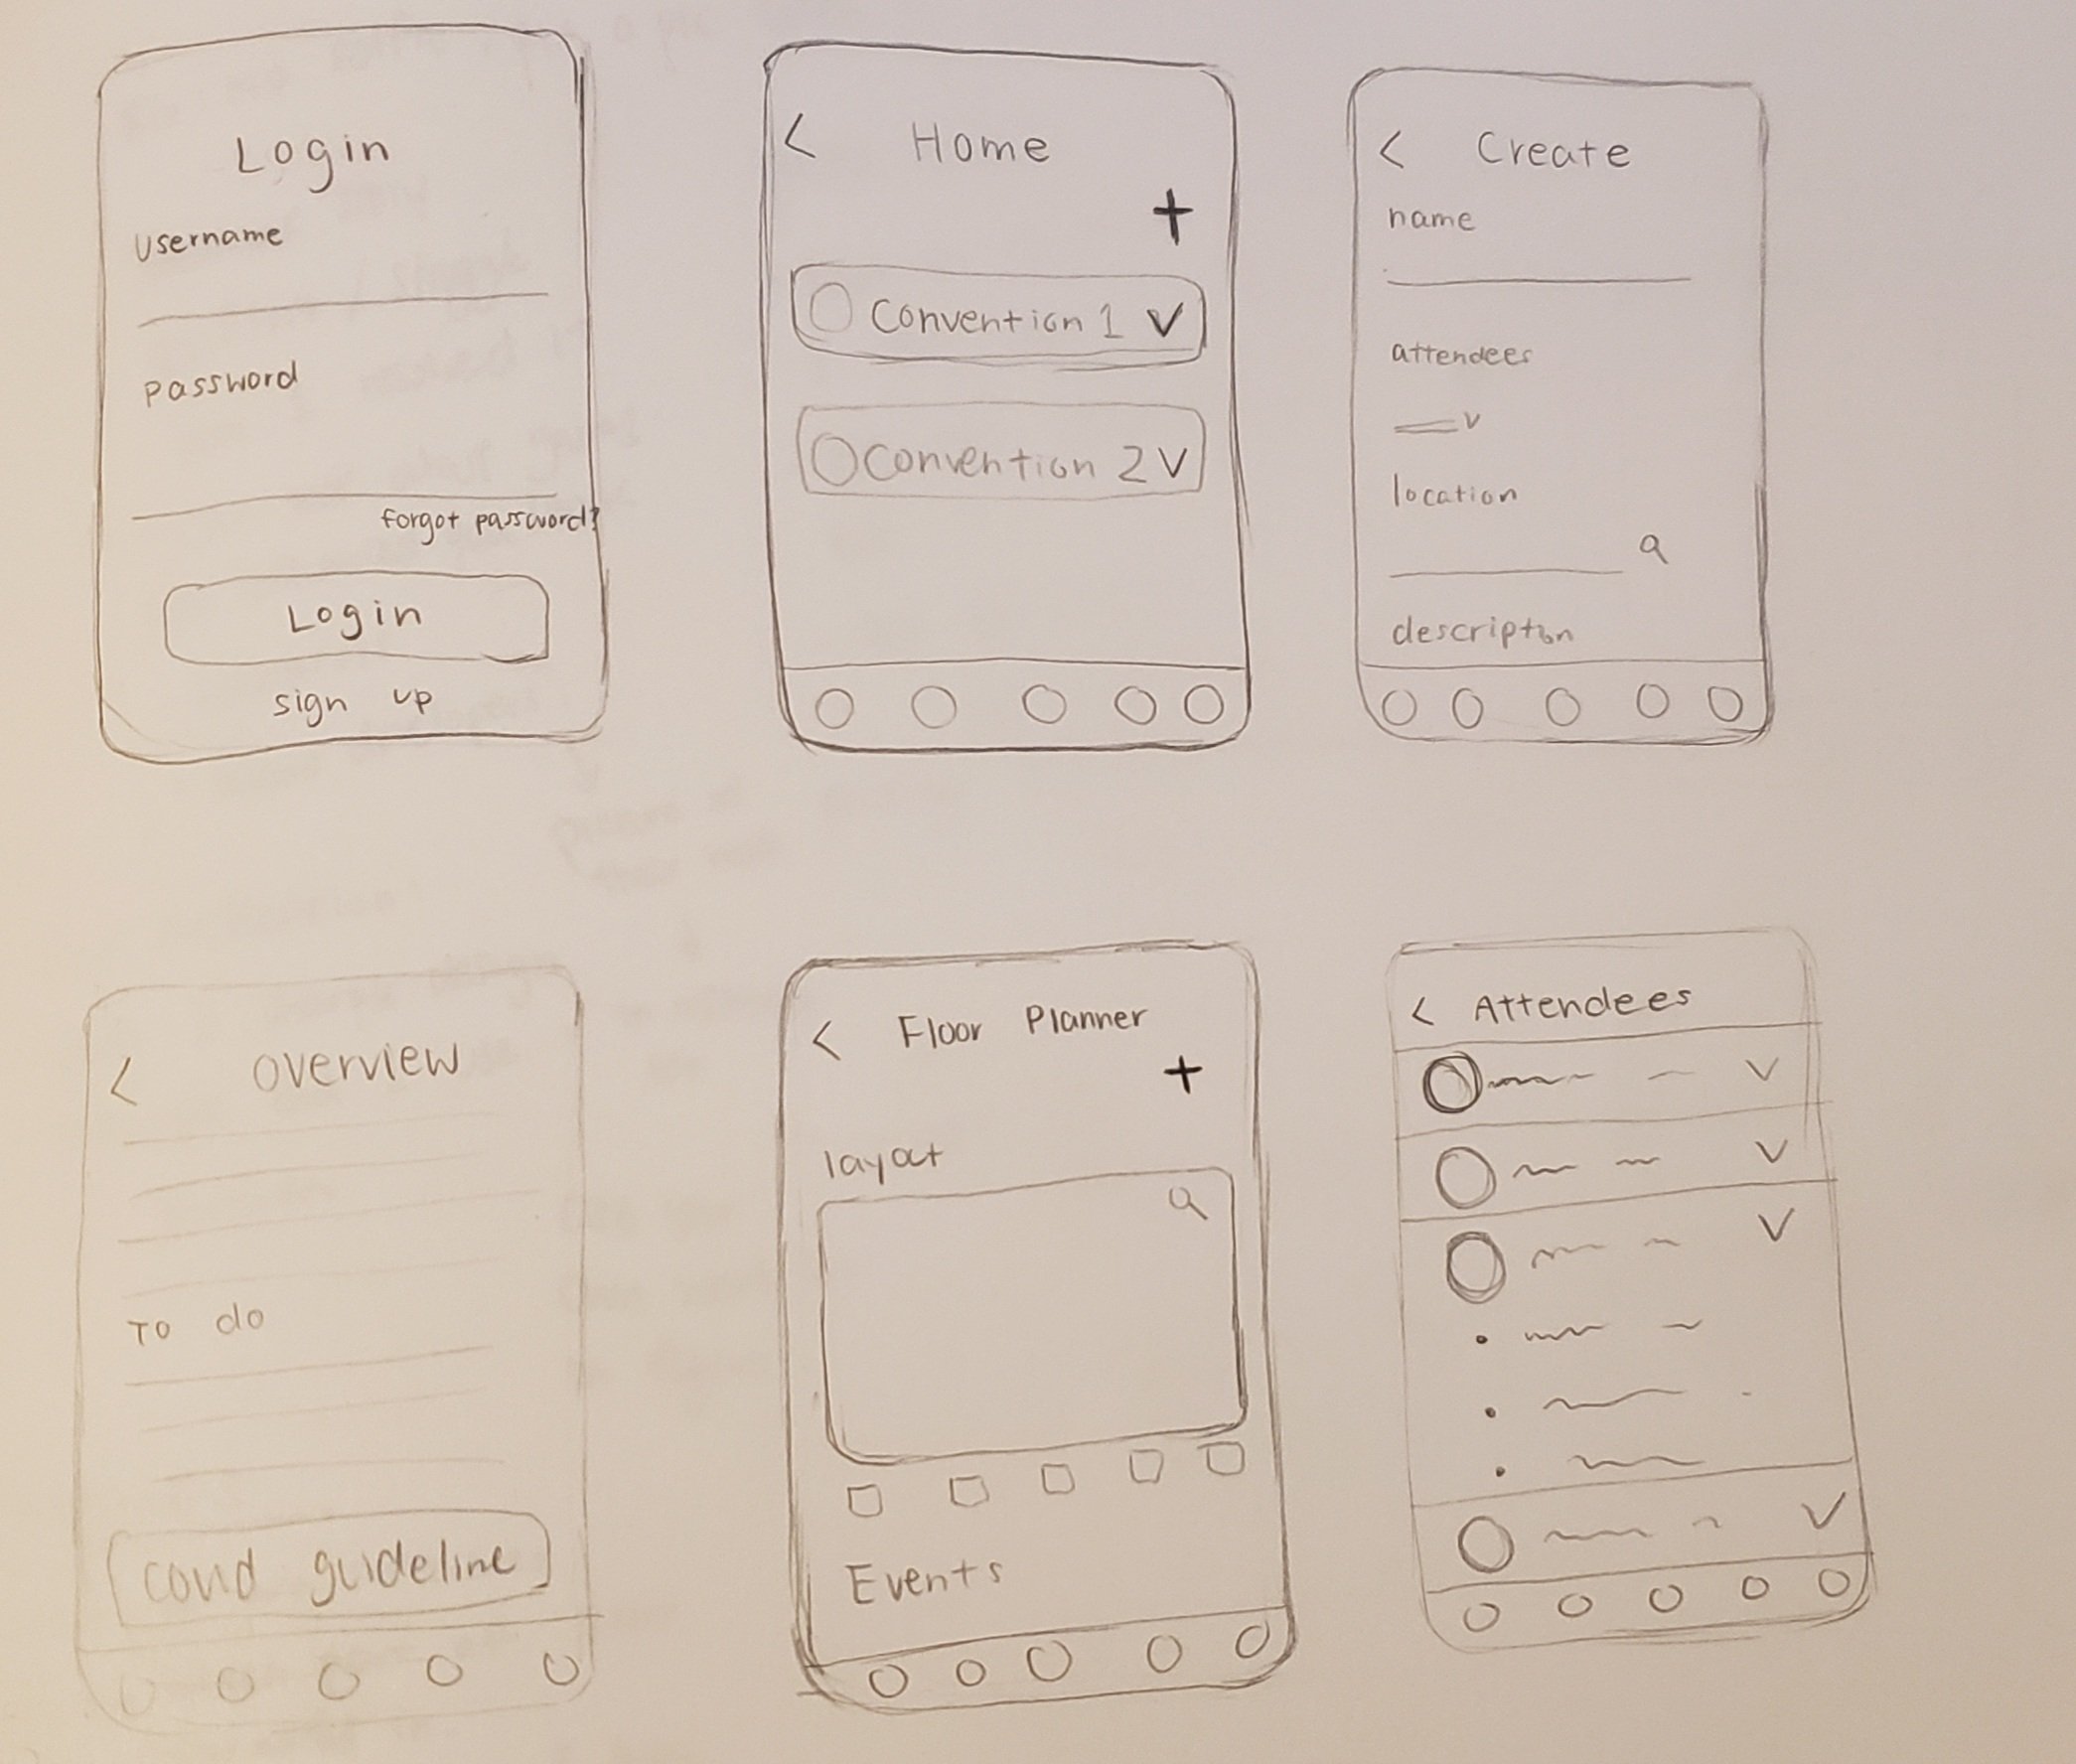 Login
username
password
forgot password?
Login
sign up
< Home
+
Convention 1 V
Convention 2 V
< Create
name
attendees
V
location
description
< overview
TO do
covid guideline
< Floor Planner
+
layout
Events
< Attendees
V
V
V
V